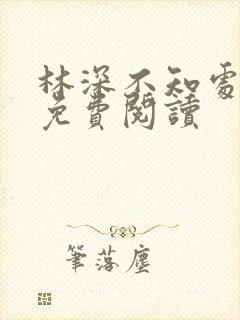 林深不知處
免費閱讀
筆落塵